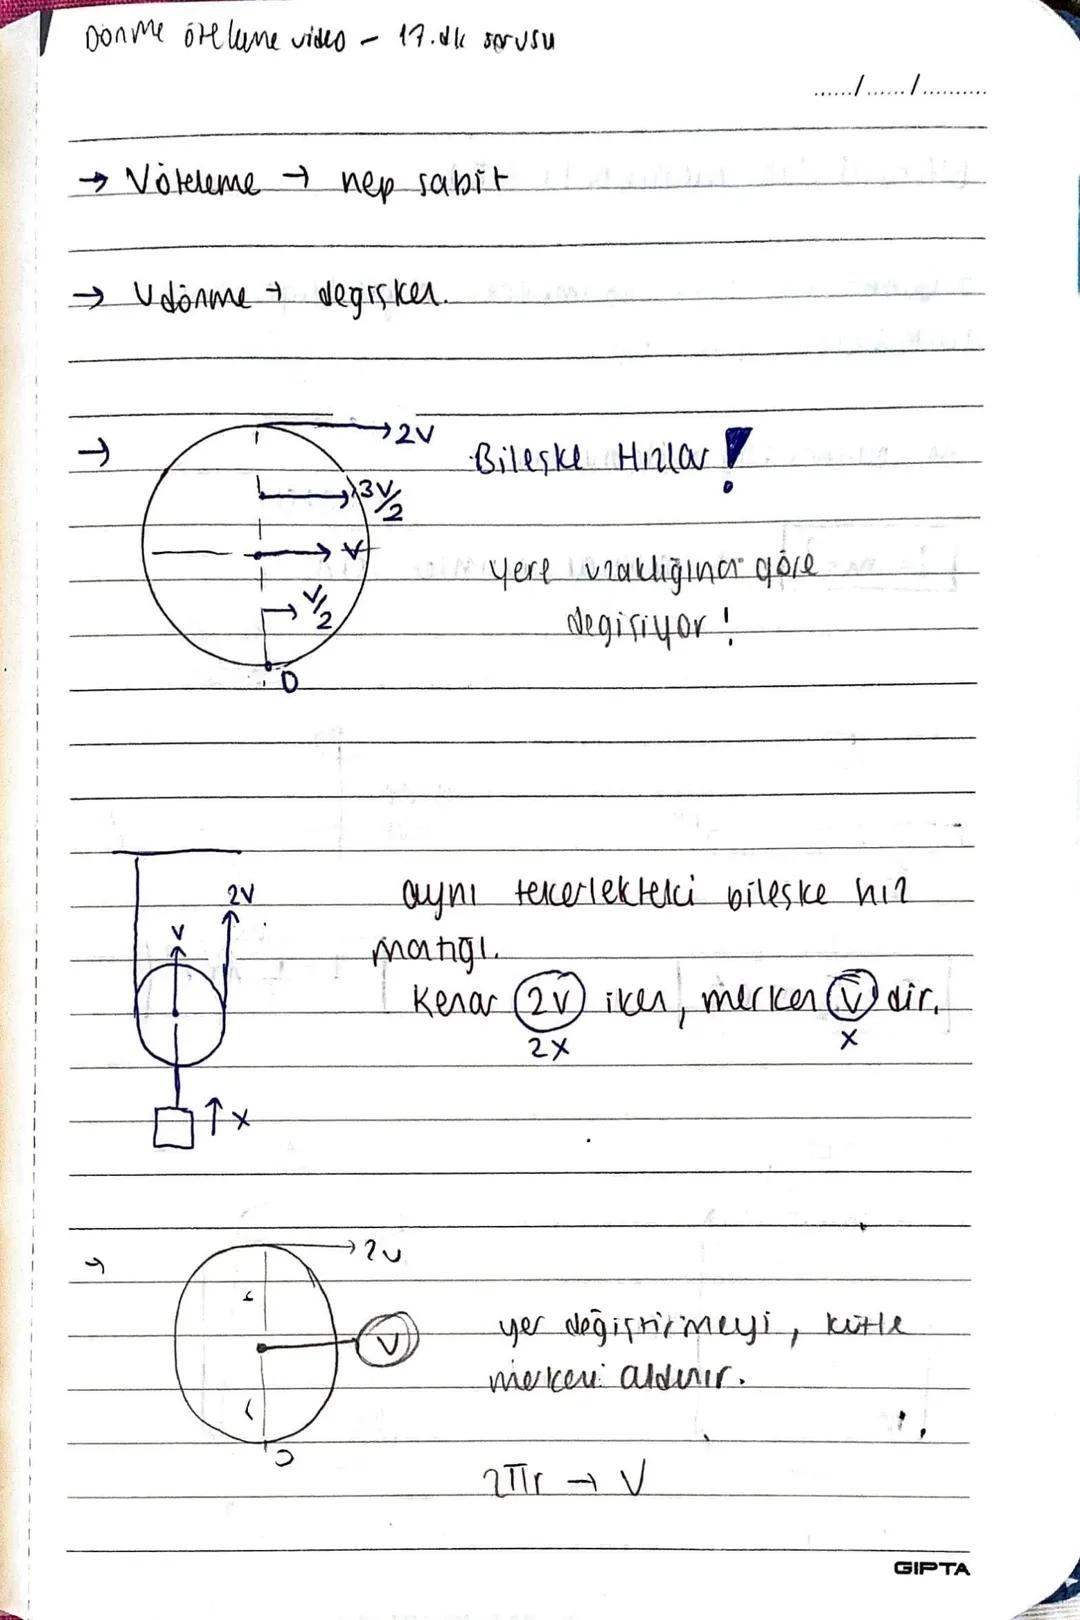 Dönme öteleme video - 17.dk sorusu
....../....../..........
→ Vöteleme → hep sabit
→ Vdönme → değişken.
→
2V
Bileşke Hızlar!
3V/2
V
yere uzaklığına göre
V/2
değişiyor!
0
2V
aynı tekerlekteki bileşke hız
V
mantığı.
Kenar 2V iken, merkez V dir.
2x
x
↑x
→
2V
yer değiştirmeyi, kütle
V
merkezi aldırır.
2πr → V
GIPTA